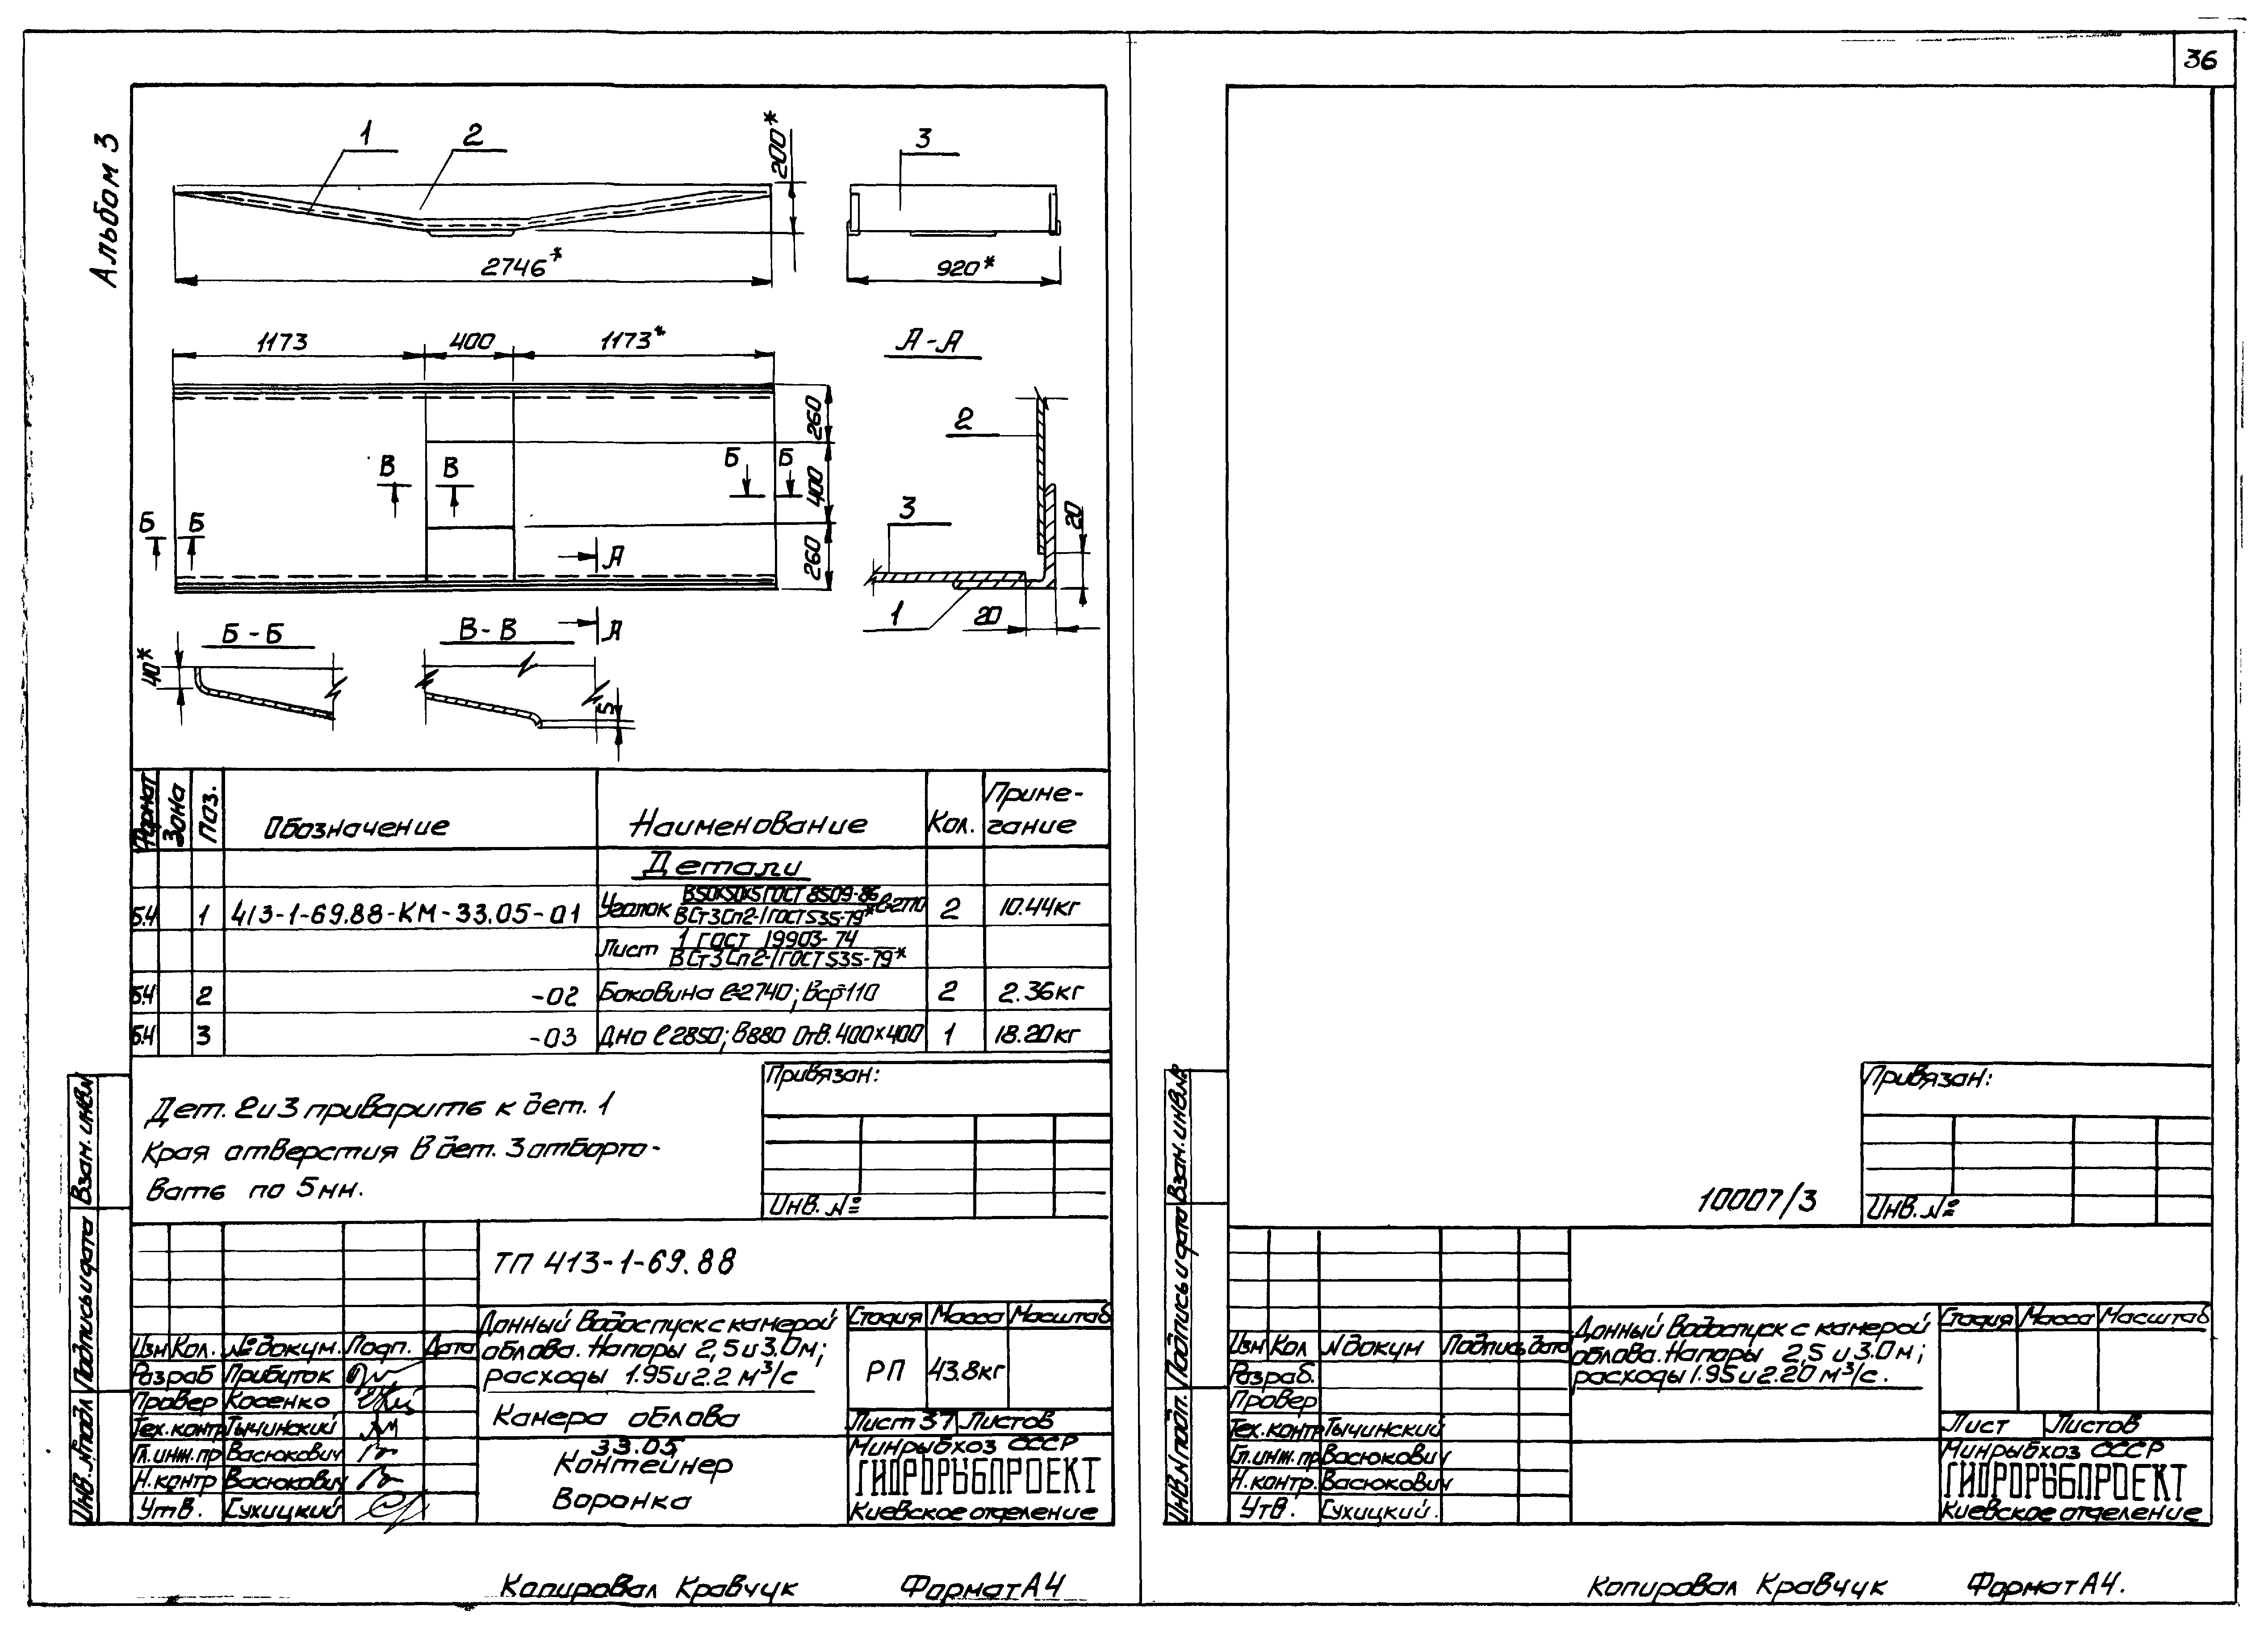 36
Альбом 3
1
2
200*
3
2746*
920*
1173
400
1173*
А-А
260
2
В В
Б Б
400
3
20
Б Б
А
260
1
20
Б-Б
В-В
А
40*
5
Формат
Зона
Поз.
Обозначение
Наименование
Кол.
Приме-
чание
Детали
БЧ 1 413-1-69.88-КМ-33.05-01 Уголок В50х50х5 ГОСТ 8509-86 / ВСт3Сп2-1 ГОСТ 535-79* ℓ-2770 2 10.44кг
Лист 1 ГОСТ 19903-74 / ВСт3Сп2-1 ГОСТ 535-79*
БЧ 2 -02 Боковина ℓ=2740; Вср=110 2 2.36кг
БЧ 3 -03 Дно ℓ2850; В880 Отв. 400х400 1 18.20кг
Дет. 2 и 3 приварить к дет. 1
Края отверстия в дет. 3 отборто-
вать по 5мм.
Привязан:
Инв. №
Взам. инв. №
Подпись и дата
Инв. № подл
ТП 413-1-69.88
Изм Кол. № докум. Подп. Дата
Разраб Прибуток
Провер Косенко
Тех.контр Тычинский
Гл.инж.пр Васюкович
Н.контр Васюкович
Утв. Сухицкий
Донный водоспуск с камерой
облова. Напоры 2,5 и 3.0м;
расходы 1.95 и 2.2 м³/с
Камера облова
33.05
Контейнер
Воронка
Стадия Масса Масштаб
РП 43.8кг
Лист 37 Листов
Минрыбхоз СССР
ГИДРОРЫБПРОЕКТ
Киевское отделение
Копировал Кравчук Формат А4
Привязан:
10007/3
Инв. №
Взам. инв. №
Подпись и дата
Инв. № подл.
Изм Кол N докум Подпись дата
Разраб.
Провер
Тех.контр Тычинский
Гл.инж.пр Васюкович
Н.контр. Васюкович
Утв. Сухицкий.
Донный водоспуск с камерой
облова. Напоры 2,5 и 3.0м;
расходы 1.95 и 2.20 м³/с.
Стадия Масса Масштаб
Лист Листов
Минрыбхоз СССР
ГИДРОРЫБПРОЕКТ
Киевское отделение
Копировал Кравчук Формат А4.